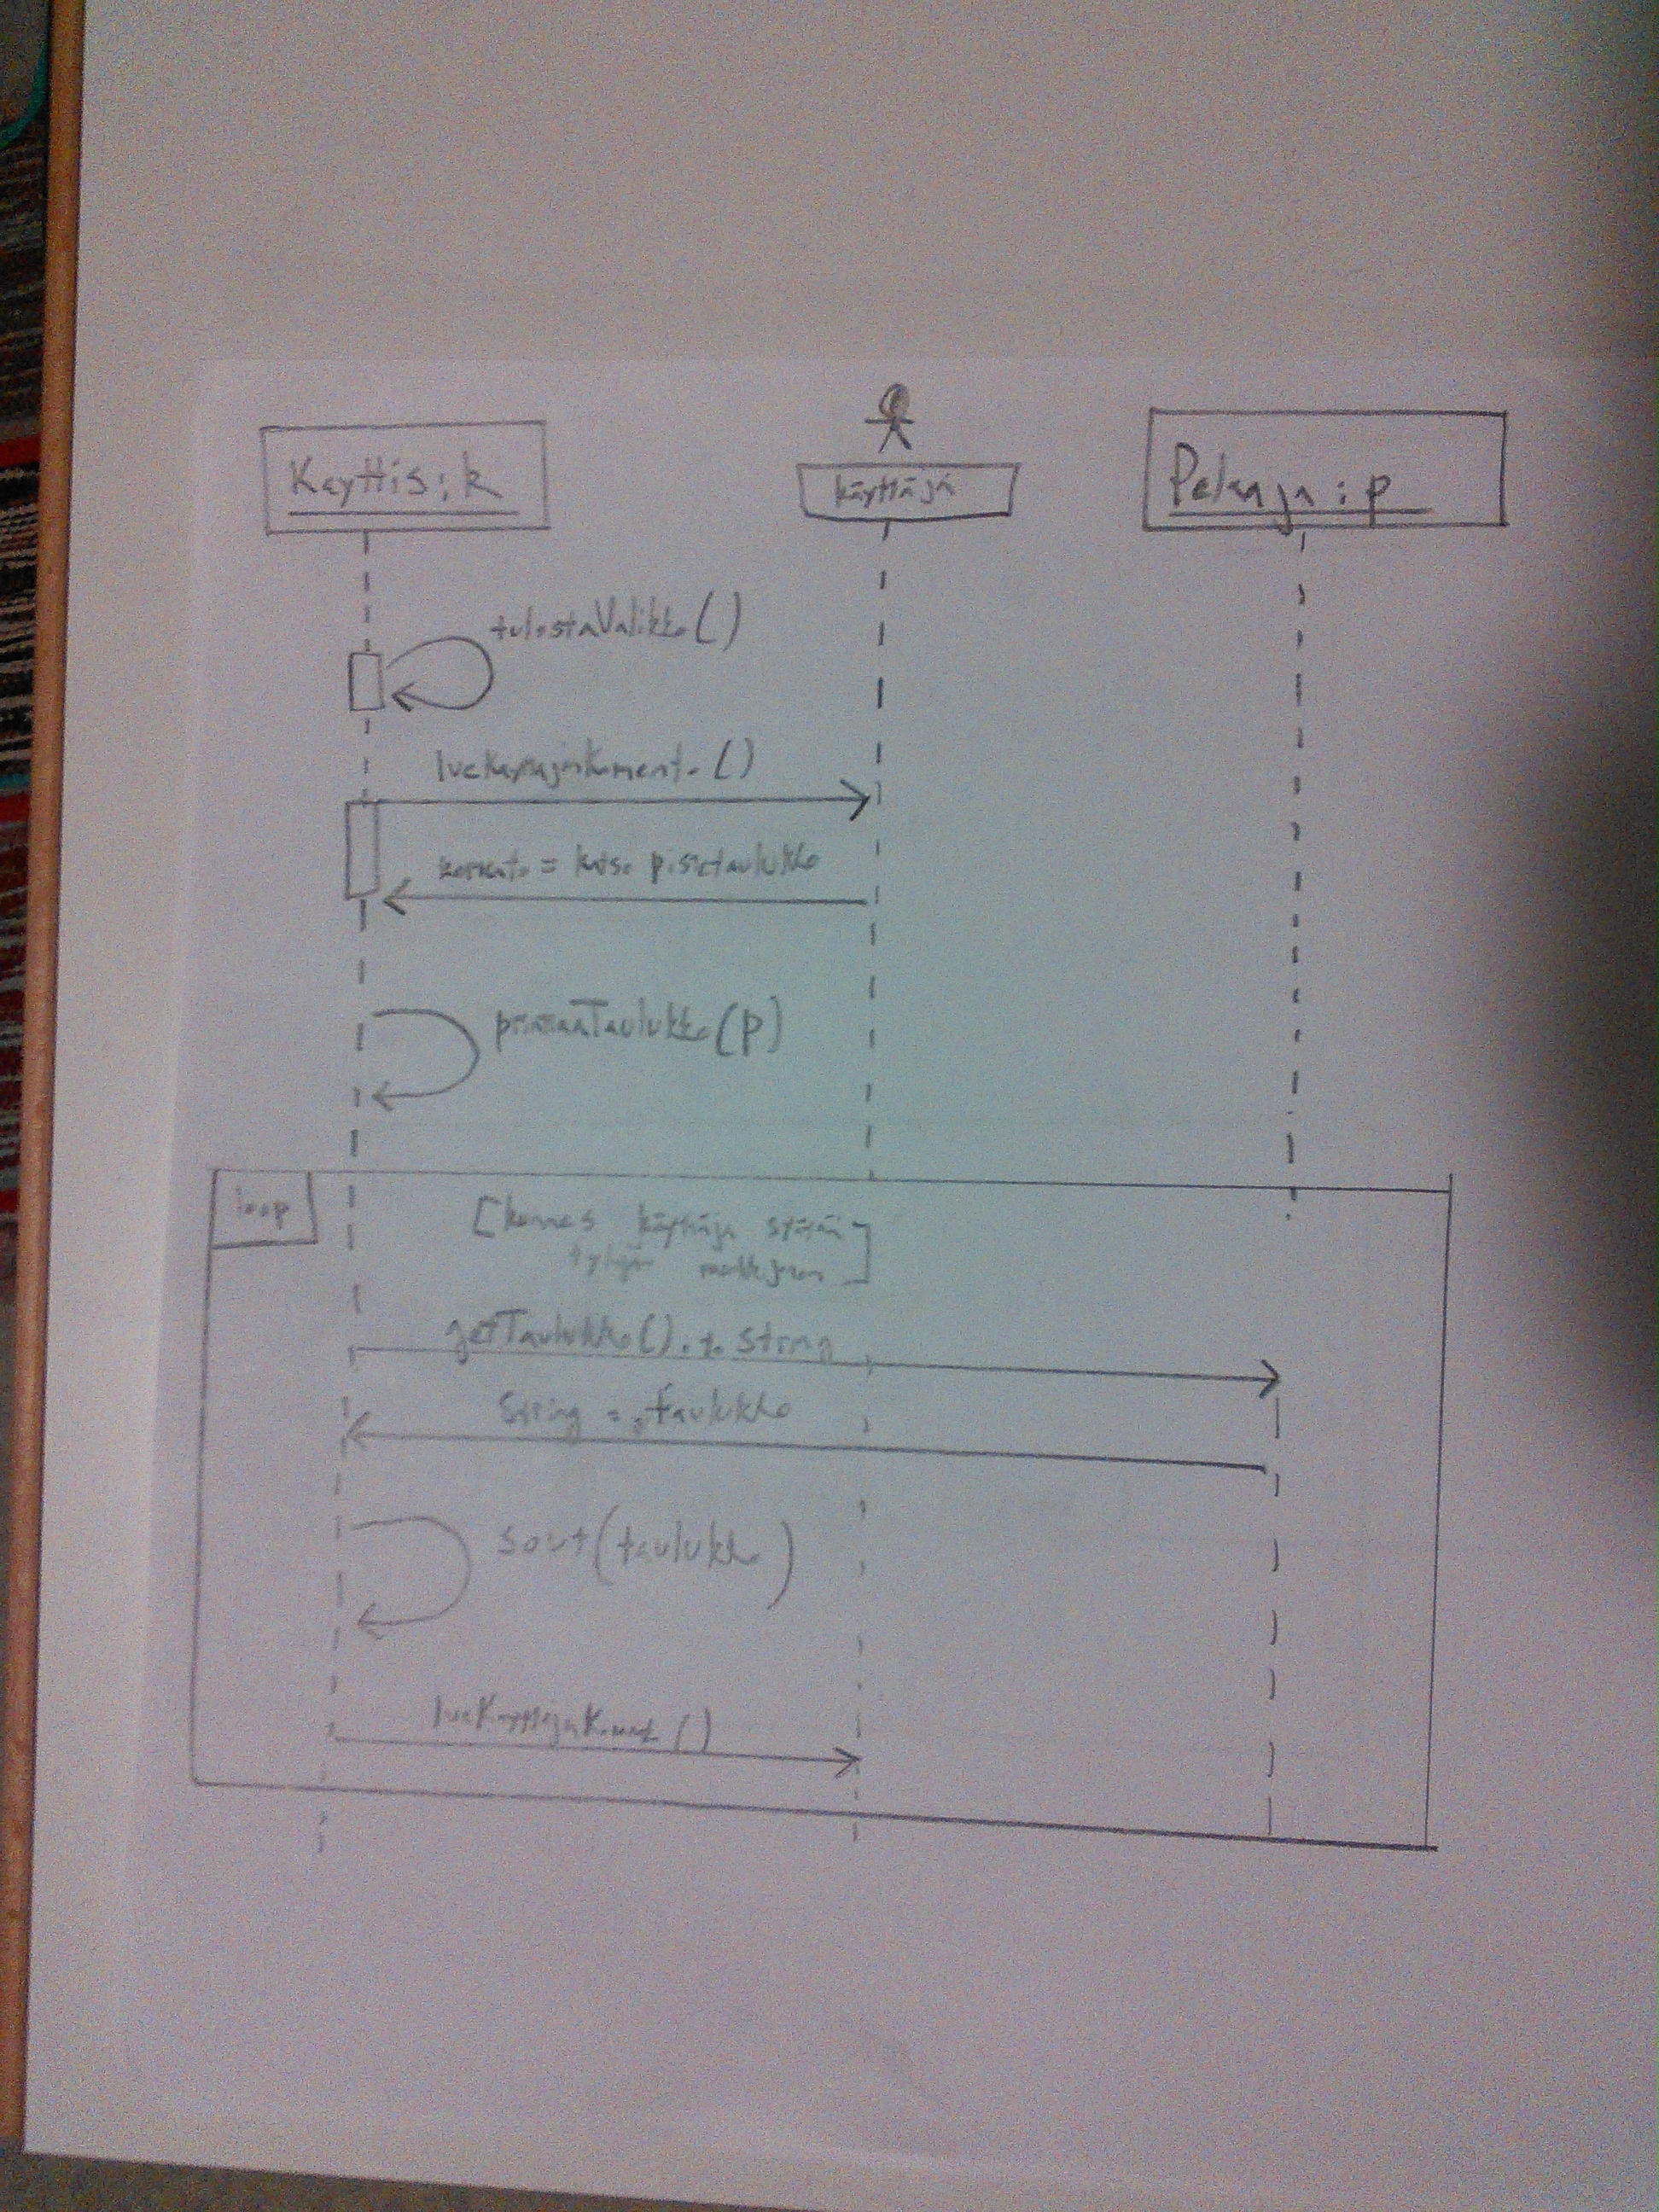 Kayttis:k
käyttäjä
Pelaaja:p
tulostaValikko()
komento = katso pistetaulukko
printtaaTaulukko(p)
loop
[kunnes käyttäjä syöttää
tyhjän merkkijonon]
getTaulukko().toString
String = taulukko
sout(taulukko)